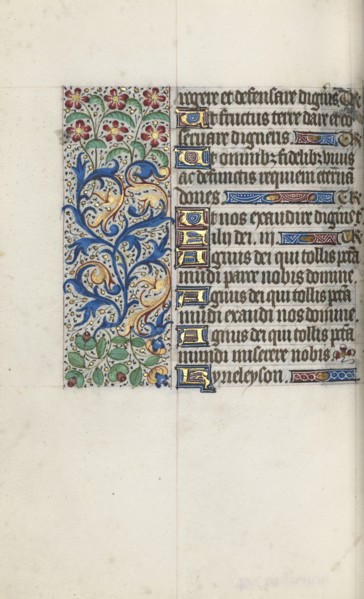 regere et defensare digneris
Ut fructus terre dare et co
servare digneris.
Ut omnibz fidelibz vivis
ac defunctis requiem eterna
dones
Ut nos exaudire digne
fili dei. iii.
Agnus dei qui tollis pcta
mundi parce nobis domine.
Agnus dei qui tollis pcta
mundi exaudi nos domine.
Agnus dei qui tollis pcta
mundi miserere nobis
Kyrieleyson.